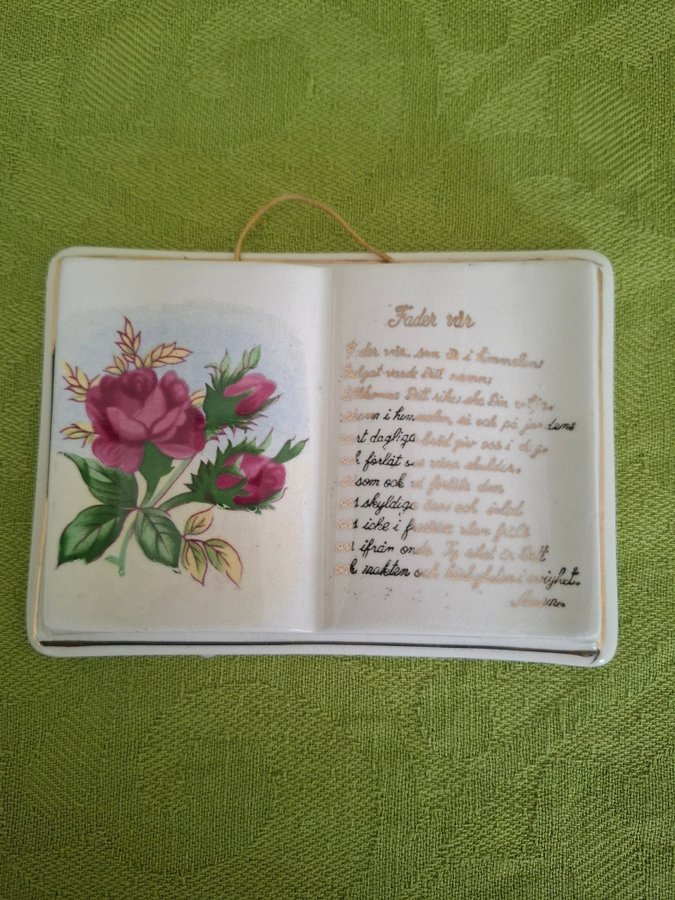 Fader vår
Fader vår, som är i himmelen;
helgat varde Ditt namn;
tillkomme Ditt rike; ske Din vilja,
såsom i himmelen, så och på jordens
vårt dagliga bröd giv oss i dag,
och förlåt oss våra skulder,
såsom ock vi förlåta dem
oss skyldiga äro; och inled
oss icke i frestelse utan fräls
oss ifrån ondo. Ty riket är Ditt
och makten och härligheten i evighet.
Amen.